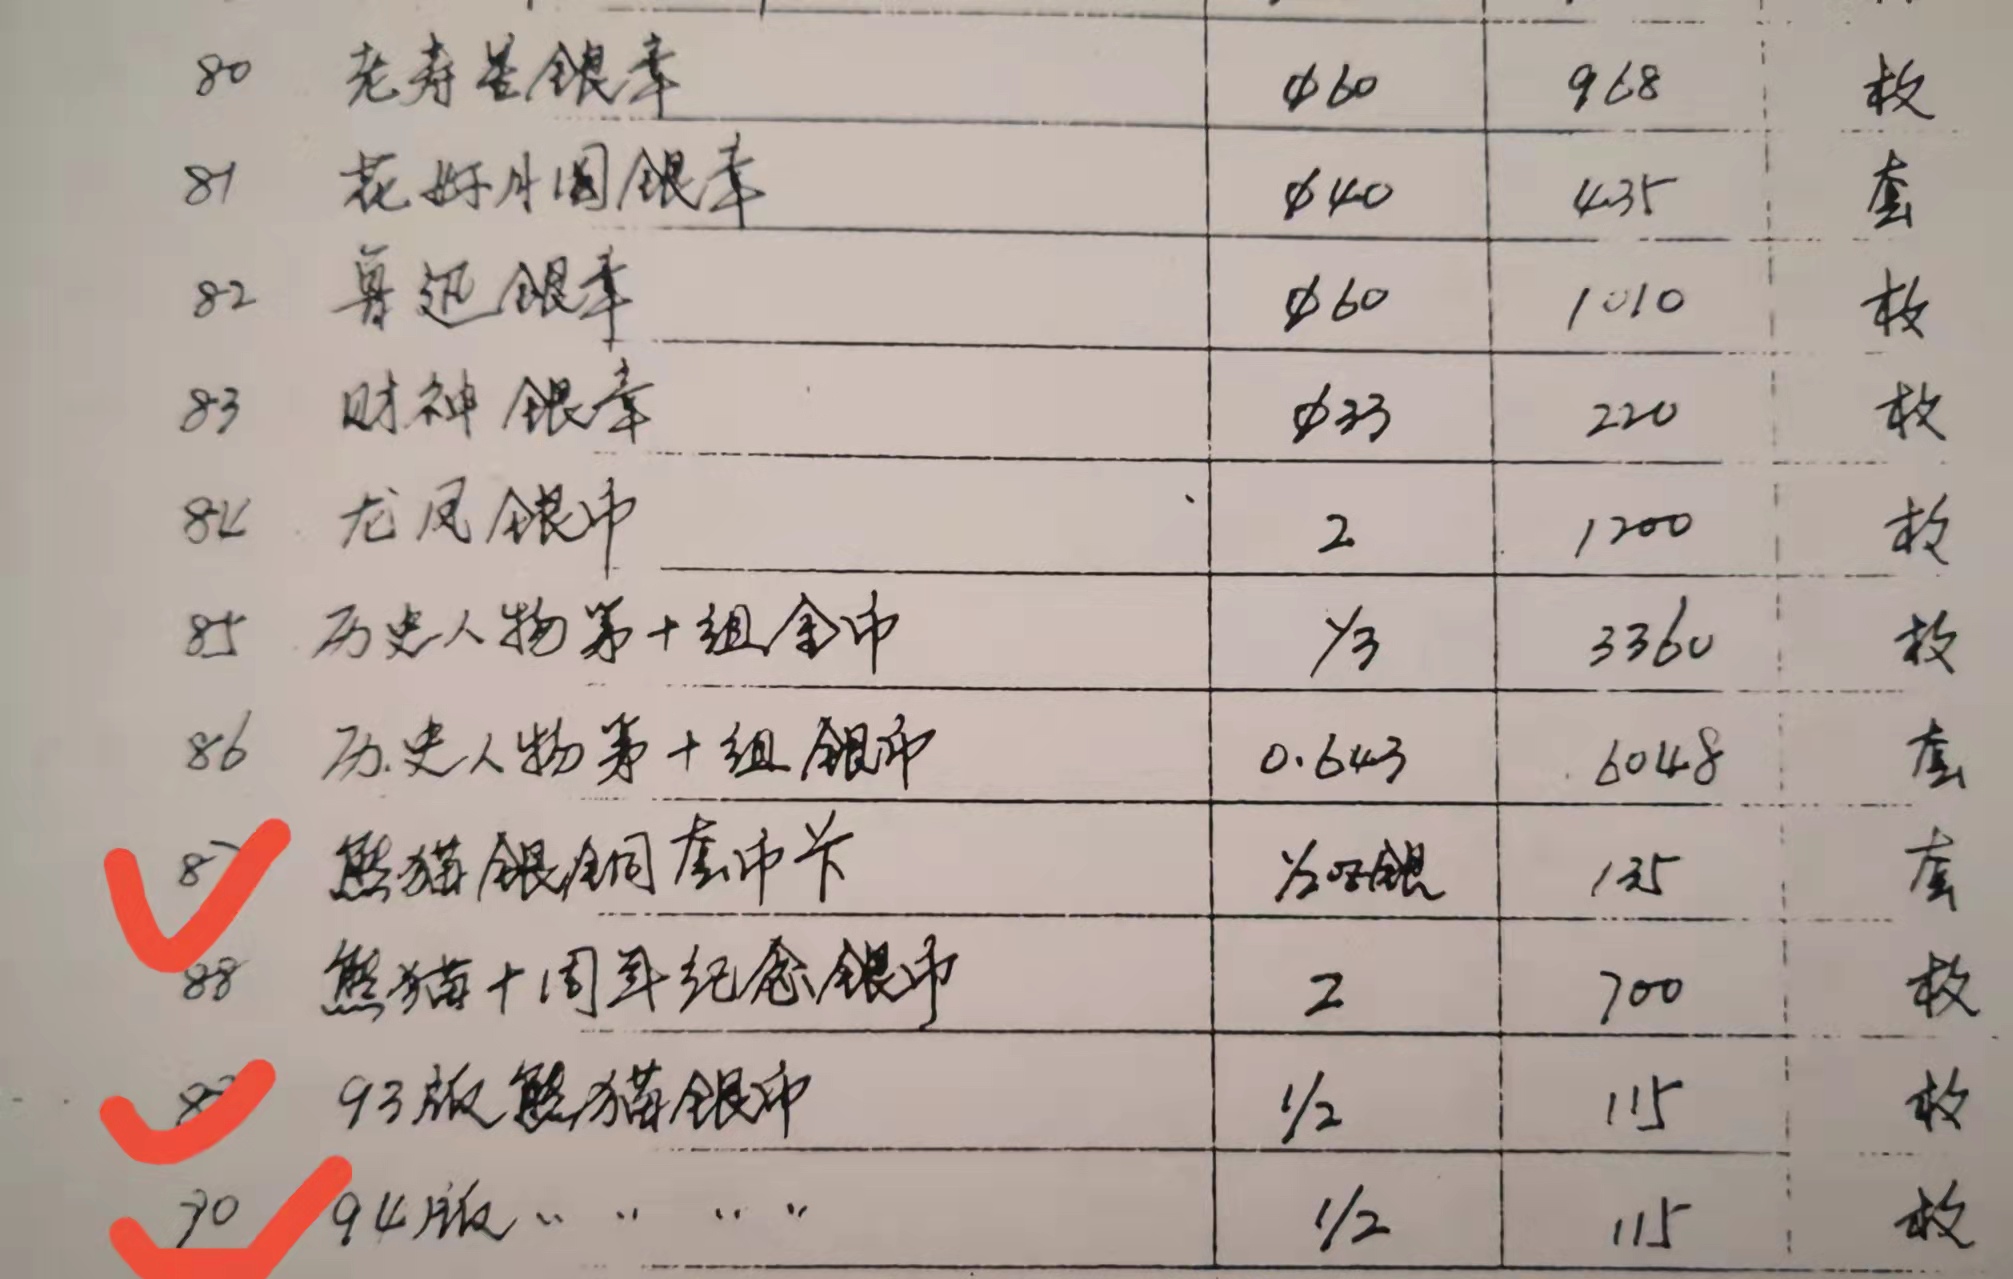 80 老寿星银章 φ60 968 枚
81 花好月圆银章 φ40 435 套
82 鲁迅银章 φ60 1010 枚
83 财神银章 φ33 220 枚
84 龙凤银币 2 1200 枚
85 历史人物第十组金币 1/3 3360 枚
86 历史人物第十组银币 0.643 6048 套
87 熊猫银铜套币卡 1/2oz银 135 套
88 熊猫十周年纪念银币 2 700 枚
89 93版熊猫银币 1/2 115 枚
90 94版 〃 〃 〃 〃 1/2 115 枚